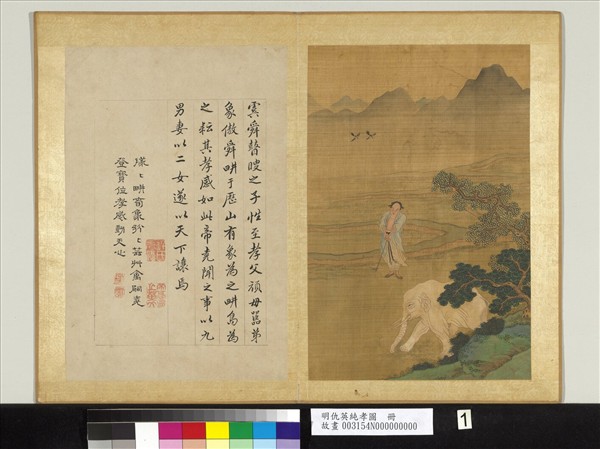 虞舜瞽瞍之子性至孝父頑母嚚弟
象傲舜畊于歷山有象為之畊鳥為
之耘其孝感如此帝堯聞之事以九
男妻以二女遂以天下讓焉
隊隊畊舂象紛紛耘艸禽嗣堯
登寶位孝感動天心
明仇英純孝圖 冊
故畫 003154N000000000
1